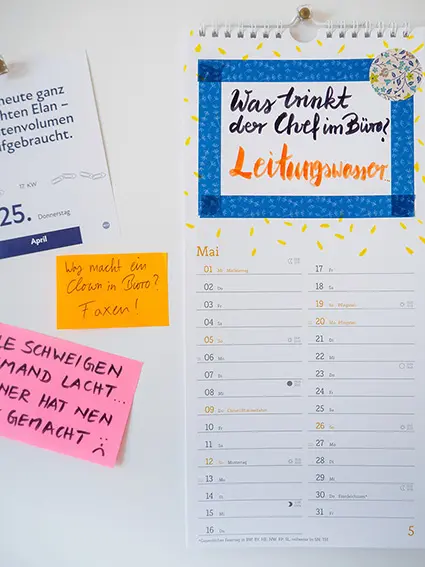 heute ganz
chten Elan –
tenvolumen
fgebraucht.
17. KW
25. Donnerstag
April
Was macht ein
Clown im Büro?
Faxen!
LE SCHWEIGEN
MAND LACHT...
NER HAT NEN
GEMACHT
Was trinkt
der Chef im Büro?
Leitungswasser...
Mai
01 Mi Maifeiertag
02 Do
03 Fr
04 Sa
05 So
06 Mo
07 Di
08 Mi
09 Do Christi Himmelfahrt
10 Fr
11 Sa
12 So Muttertag
13 Mo
14 Di
15 Mi
16 Do
17 Fr
18 Sa
19 So Pfingsten
20 Mo Pfingsten
21 Di
22 Mi
23 Do
24 Fr
25 Sa
26 So
27 Mo
28 Di
29 Mi
30 Do Fronleichnam*
31 Fr
5